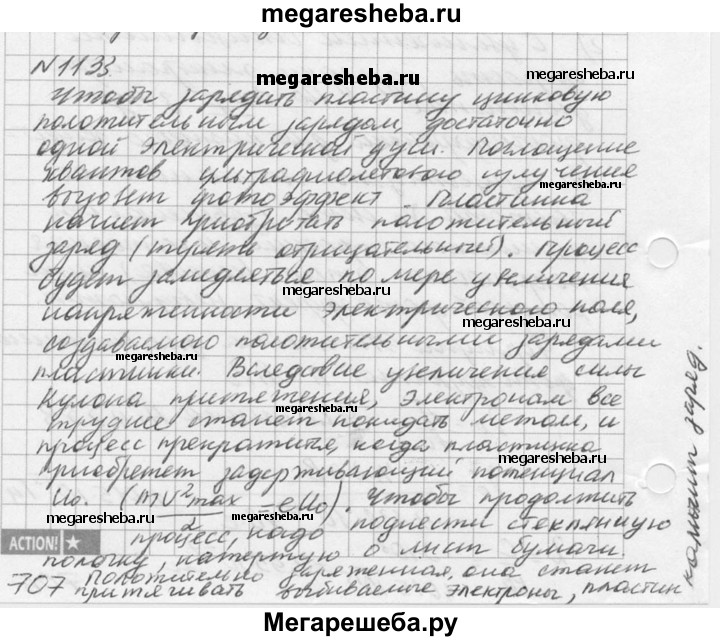 megaresheba.ru
N1133
megaresheba.ru
Чтобы зарядать пластину цинковую
положительным зарядом, достаточно
одной электрической дуги. Поглощение
квантов ультрафиолетового излучения
megaresheba.ru
вызовет фотоэффект. Пластинка
начнет приобретать положительный
заряд (терять отрицательный). Процесс
будет замедляться по мере увеличения
megaresheba.ru
напряженности электрического поля,
megaresheba.ru
создаваемого положительными зарядами
megaresheba.ru
пластинки. Вследствие увеличения силы
Кулона притяжения, электронам все
megaresheba.ru
труднее станет покидать металл, и
процесс прекратится, когда пластинка
megaresheba.ru
приобретет задерживающий потенциал
U₀. (mV²max/2 = eU₀). Чтобы продолжить
megaresheba.ru
megaresheba.ru
процесс, надо поднести стеклянную
ACTION!
палочку, натертую о лист бумаги.
707 Положительно заряженная, она станет
притягивать выбиваемые электроны, пластин
ка
заряд.
Мегарешеба.ру